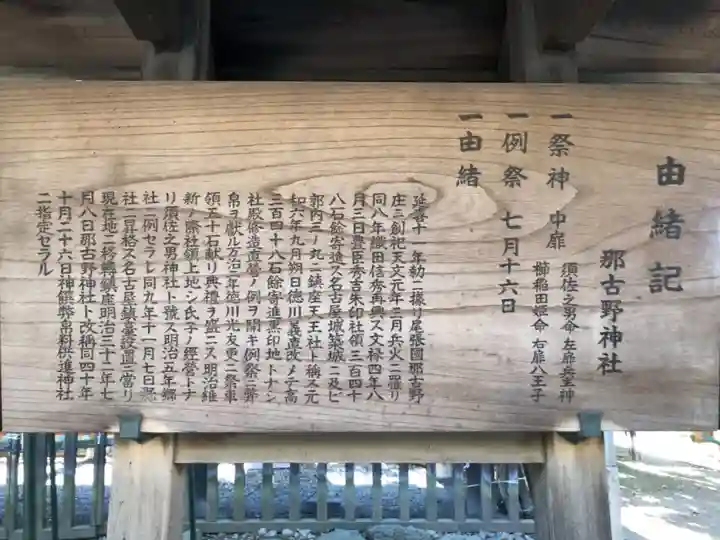 由緒記
那古野神社
一祭神 中扉 須佐之男命 左扉 兵主神
櫛稲田姫命 右扉 八王子
一例祭 七月十六日
一由緒
延喜十一年勅ニ據リ尾張國那古野
庄ニ創祀天文元年三月兵火ニ罹リ
同八年織田信秀再興ス文禄四年八
月三日豊臣秀吉朱印社領三百四十
八石餘寄進ス名古屋城築城ニ及ビ
郭内三ノ丸ニ鎮座天王社ト稱ス元
和六年九月朔日徳川義直改メテ高
三百四十八石餘寄進黒印地トナシ
社殿修造直營ノ例ヲ開キ例祭ニ幣
帛ヲ獻ル万治二年徳川光友更ニ祭車
領五十石献リ典禮ヲ盛ニス明治維
新ノ際社領上地シ氏子ノ經營トナ
リ須佐之男神社ト號ス明治五年郷
社ニ列セラレ同九年十一月七日縣
社ニ昇格ス名古屋鎮臺設置ニ當リ
現在地ニ移轉鎮座明治三十二年七
月八日那古野神社ト改稱同四十年
十月二十六日神饌幣帛料供進神社
ニ指定セラル